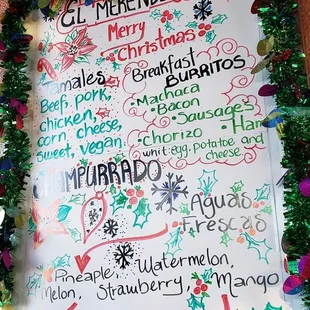 EL MERENDE
Merry
Christmas
Tamales
Beef, pork,
chicken,
corn, cheese,
sweet, vegan.
Breakfast
BURRITOS
• Machaca
• Bacon
• Sausages
• Chorizo • Ham
whit: egg, potatoe and
cheese
CHAMPURRADO
Aguas
Frescas
Pineaple, Watermelon,
Melon, Strawberry, Mango